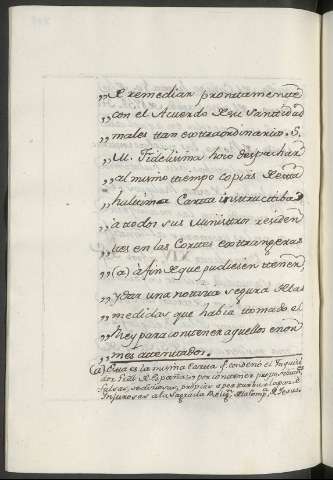 „ de remediar prontamente
„ con el Acuerdo de su Santidad
„ males tan extraordinarios. S.
„ M. Fidelisima hizo despachar
„ al mismo tiempo copias de esta
„ hultima Carta instructiba
„ a todos sus Ministros residen
„ tes en las Cortes extrangeras
„ (a) à fin de que pudiesen tener
„ y dar una noticia segura de las
„ medidas que habia tomado el
„ Rey para contener aquellos enor
„ mes atentados.
(a) Esta es la misma Carta q. condenó el Inquisi
dor Gral. de España por contener proposiciones
falsas, sediciosas, propias a perturbar la paz è
Injuriosas a la Sagrada Relig. de la Comp. de Jesus.